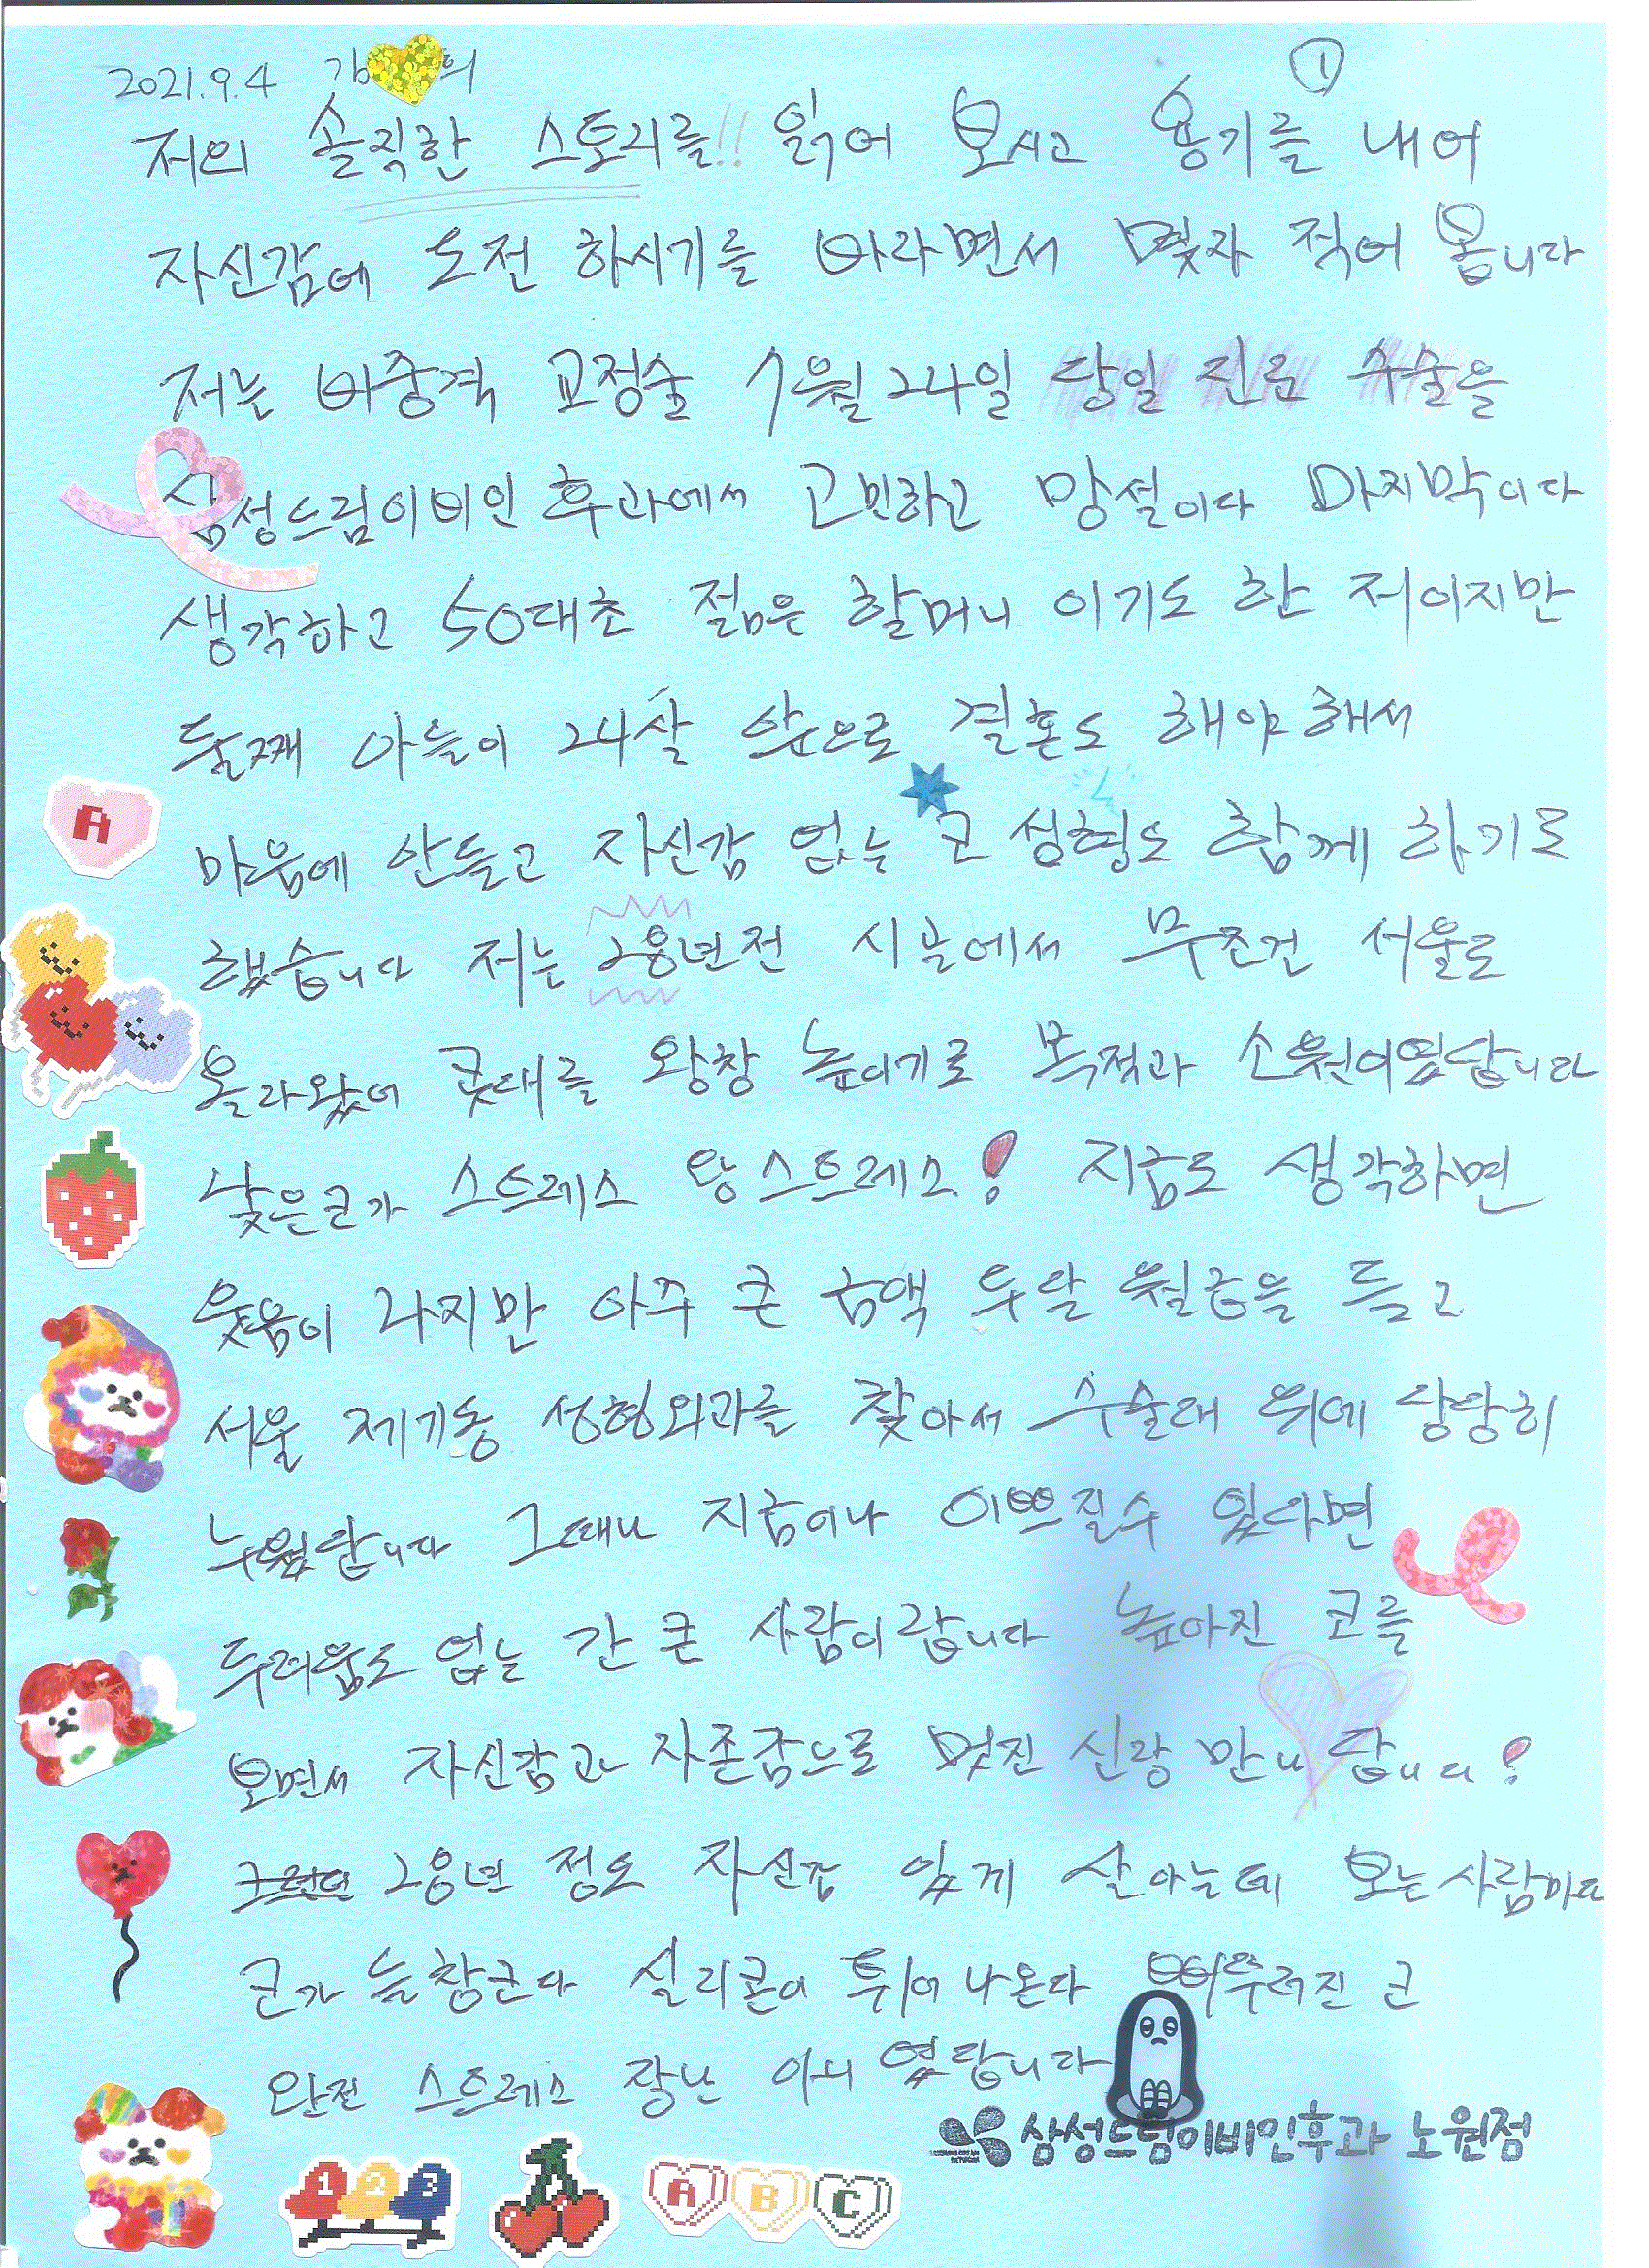 ①
2021.9.4 김 의
저의 솔직한 스토리를!! 읽어 보시고 용기를 내어
자신감에 도전 하시기를 바라면서 몇자 적어 봅니다
저는 비중격 교정술 7월 24일 당일 진료 수술을
삼성드림이비인후과에서 고민하고 망설이다 마지막이다
생각하고 50대초 젊은 할머니 이기도 한 저이지만
둘째 아들이 24살 앞으로 결혼도 해야해서
마음에 안들고 자신감 없는 코 성형도 함께 하기로
했습니다 저는 28년전 시골에서 무조건 서울로
올라왔어 콧대를 왕창 높이기로 목적과 소원이였답니다
낮은코가 스트레스 왕스트레스! 지금도 생각하면
웃음이 나지만 아주 큰 금액 두달 월급을 들고
서울 제기동 성형외과를 찾아서 수술대 위에 당당히
누웠답니다 그때나 지금이나 이쁘질수 있다면
두려움도 없는 간 큰 사람이랍니다 높아진 코를
보면서 자신감과 자존감으로 멋진 신랑 만나답니다!
28년 정도 자신감 있게 살아는데 보는사람마다
코가 늘창코다 실리콘이 튀어나온다 삐뚜러진 코
완전 스트레스 장난 아니 였답니다
삼성드림이비인후과 노원점
A
1 2 3
A B C